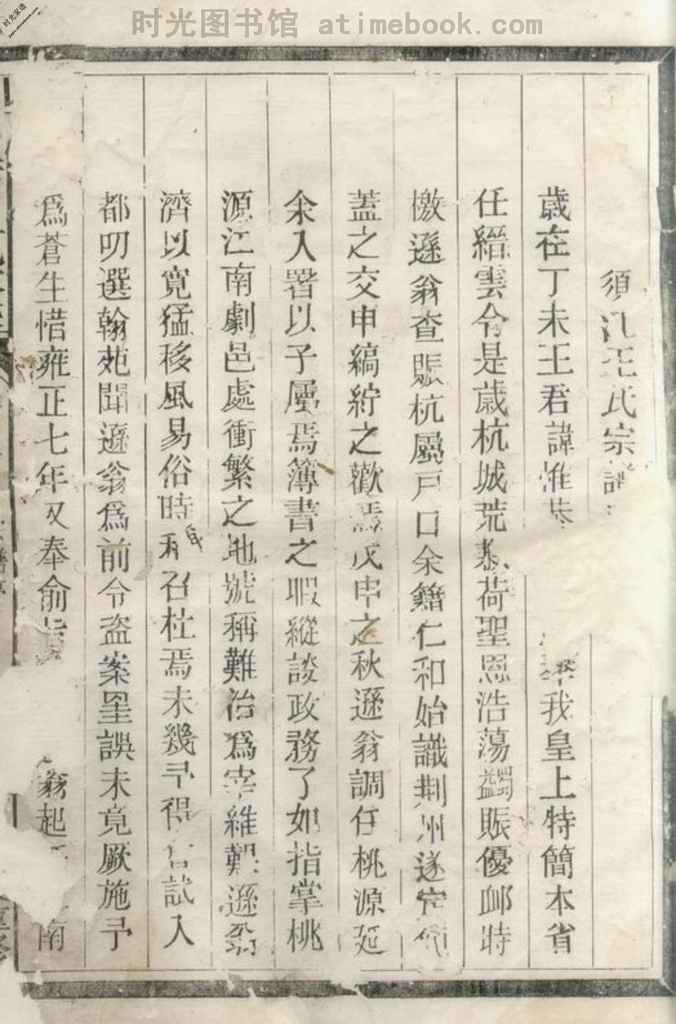 时光图书馆 atimebook.com
须江王氏宗譜
歲在丁未王君諱惟 我皇上特簡本省
任縉雲令是歲杭城荒 荷聖恩浩荡蠲賑優邮時
檄遜翁查賑杭屬戸口余籍仁和始識荆州遂定傾
蓋之交申縞紵之歡焉戊申之秋遜翁調任桃源延
余入署以子屬焉簿書之暇縱談政務了如指掌桃
源江南劇邑處衝繁之地號稱難治爲宰維艱遜翁
濟以寛猛移風易俗時稱召杜焉未幾予得 試入
都叨選翰苑聞遜翁爲前令盗案罣誤未竟厥施予
爲蒼生惜雍正七年又奉俞 翁起 南